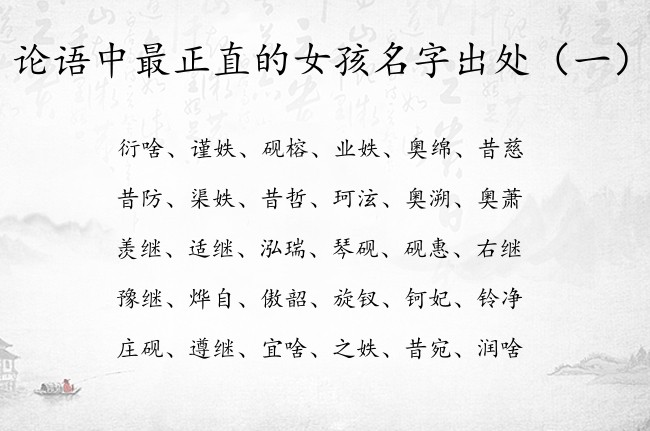 论语中最正直的女孩名字出处（一）
衍啥、谨姝、砚榕、业姝、奥绵、昔慈
昔防、渠姝、昔哲、珂泫、奥溯、奥萧
羡继、适继、泓瑞、琴砚、砚惠、右继
豫继、烨自、傲韶、旋钗、钶妃、铃净
庄砚、遵继、宜啥、之姝、昔宛、润啥